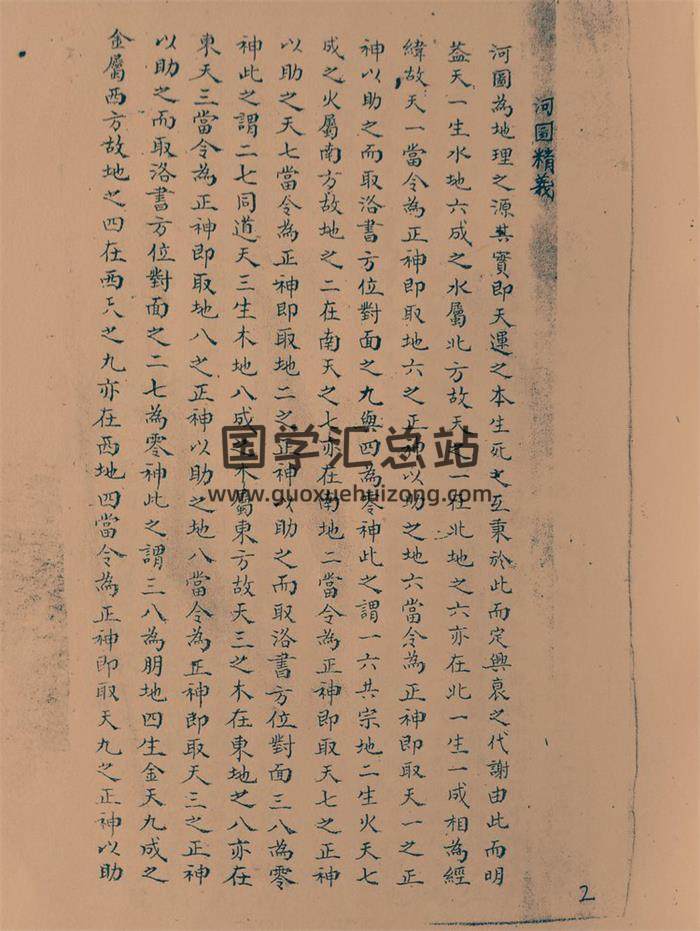 河圖精義
河圖為地理之源其實即天運之本生死之互乘於此而定興衰之代謝由此而明
蓋天一生水地六成之水屬北方故天之一在北地之六亦在北一生一成相為經
緯故天一當令為正神即取地六之正神以助之地六當令為正神即取天一之正
神以助之而取洛書方位對面之九與四為零神此之謂一六共宗地二生火天七
成之火屬南方故地之二在南天之七亦在南地二當令為正神即取天七之正神
以助之天七當令為正神即取地二之正神以助之而取洛書方位對面三八為零
神此之謂二七同道天三生木地八成之木屬東方故天三之木在東地之八亦在
東天三當令為正神即取地八之正神以助之地八當令為正神即取天三之正神
以助之而取洛書方位對面之二七為零神此之謂三八為朋地四生金天九成之
金屬西方故地之四在西天之九亦在西地四當令為正神即取天九之正神以助
2
国学汇总站
www.guoxuehuizong.com